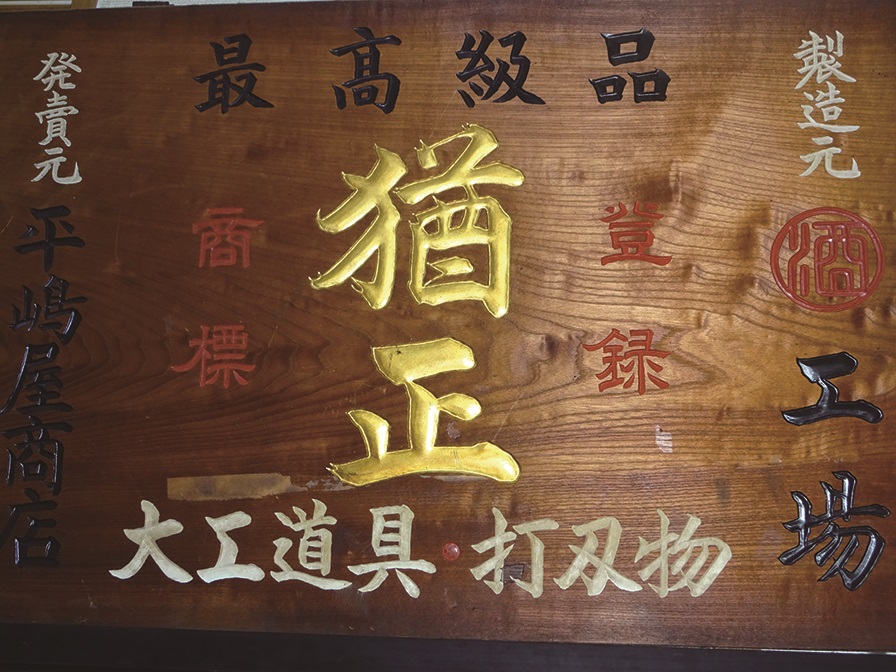 最高級品
製造元
酒
工場
登録
商標
猶正
大工道具・打刃物
発賣元
平嶋屋商店